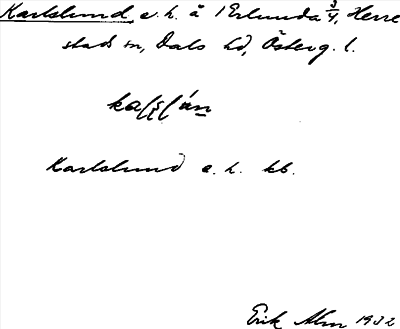 Karlslund, e. h. å 1 Erlunda 3/4, Herre
stads sn, Dals hd, Österg. l.
Karlslund e. h. kb.
Erik Alm 1932